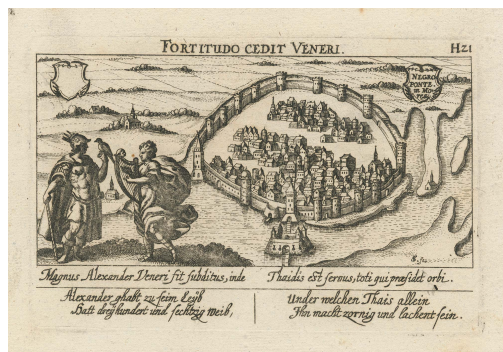 FORTITUDO CEDIT VENERI.
H21
NEGRO
PONTE
in Mo
rea.
Magnus Alexander Veneri fit subditus, inde
Thaidis est servus, toti qui præsidet orbi.
Alexander ghabt zu seim Leyb
Hatt dreyhundert und sechtzig Weib,
Under welchen Thais allein
Ihn macht zornig und lachent sein.